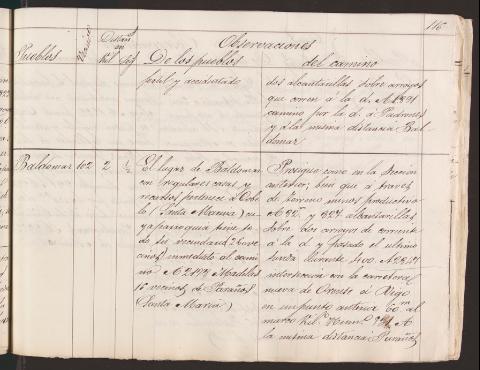 116
Pueblos
Vecinos
Distanc.
en
Kil.
Observaciones
De los pueblos
del camino
fértil y accidentado
dos alcantarillas sobre arroyos
que corren á la d. A 1391
camino por la d. á Padrones
y á la misma distancia Bal-
domar
Baldomar 102 2 ½
El lugar de Baldomar
con irregulares casas y
recursos pertenece á
le (Santa Marina) cu-
ya parroquia tiene to-
do su vecindario
inmediato al cami-
no A 2172
16 vecinos de Paraños
(Santa María)
Prosigue como en la sección
anterior, bien que á través
de terreno menos productivo
A 32 y 827 alcantarillas
sobre dos arroyos de corriente
á la d. y pasado el ultimo
durante 400 A 2341
interseccion con la carretera
nueva de Orense á Vigo
en un punto anterior 60 m al
marco Kil. A
la misma distancia Paraños